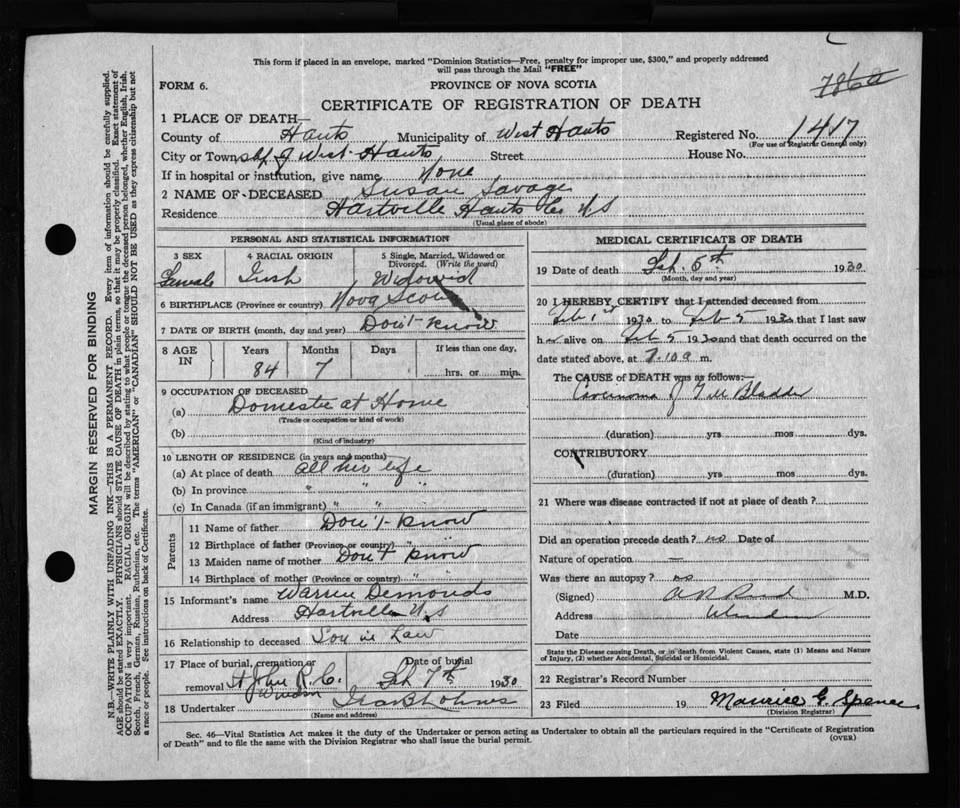 This form if placed in an envelope, marked "Dominion Statistics—Free, penalty for improper use, $300," and properly addressed
will pass through the Mail "FREE"
786a
FORM 6.
PROVINCE OF NOVA SCOTIA
CERTIFICATE OF REGISTRATION OF DEATH
1 PLACE OF DEATH—
County of Hants Municipality of West Hants Registered No. 1417
(For use of Registrar General only)
City or Town of West Hants Street House No.
If in hospital or institution, give name None
2 NAME OF DECEASED Susan Savage
Residence Hartville Hants Co N S
(Usual place of abode)
PERSONAL AND STATISTICAL INFORMATION
3 SEX 4 RACIAL ORIGIN 5 Single, Married, Widowed or
Divorced. (Write the word)
Female Irish Widowed
6 BIRTHPLACE (Province or country) Nova Scotia
7 DATE OF BIRTH (month, day and year) Don't know
8 AGE IN Years Months Days If less than one day,
84 7 hrs. or min.
9 OCCUPATION OF DECEASED
(a) Domestic at Home
(Trade or occupation or kind of work)
(b)
(Kind of industry)
10 LENGTH OF RESIDENCE (in years and months)
(a) At place of death all her life
(b) In province " " "
(c) In Canada (if an immigrant) " "
Parents
11 Name of father Don't know
12 Birthplace of father (Province or country) " "
13 Maiden name of mother Don't know
14 Birthplace of mother (Province or country) " "
15 Informant's name Warren Demonds
Address Hartville N.S
16 Relationship to deceased Son in Law
17 Place of burial, cremation or Date of burial
removal St John R.C. Feb 7th 1930
Windsor
18 Undertaker
(Name and address)
MEDICAL CERTIFICATE OF DEATH
19 Date of death Feb. 5th 1930
(Month, day and year)
20 I HEREBY CERTIFY that I attended deceased from
Feb 1st 1930 to Feb 5 1930 that I last saw
her alive on Feb 5 1930 and that death occurred on the
date stated above, at 7.10 a m.
The CAUSE OF DEATH was as follows:—
Carcinoma of Gall Bladder
(duration) yrs mos dys.
CONTRIBUTORY
(duration) yrs mos dys.
21 Where was disease contracted if not at place of death?
Did an operation precede death? no Date of
Nature of operation —
Was there an autopsy? no
(Signed) M.D.
Address Windsor
Date
State the Disease causing Death, or in death from Violent Causes, state (1) Means and Nature
of Injury, (2) whether Accidental, Suicidal or Homicidal.
22 Registrar's Record Number
23 Filed 19 Maurice G. Spence
(Division Registrar)
Sec. 46—Vital Statistics Act makes it the duty of the Undertaker or person acting as Undertaker to obtain all the particulars required in the "Certificate of Registration
of Death" and to file the same with the Division Registrar who shall issue the burial permit.
(OVER)
MARGIN RESERVED FOR BINDING
N.B.—WRITE PLAINLY WITH UNFADING INK—THIS IS A PERMANENT RECORD. Every item of information should be carefully supplied.
AGE should be stated EXACTLY. PHYSICIANS should STATE CAUSE OF DEATH in plain terms, so that it may be properly classified. Exact statement of
OCCUPATION is very important. RACIAL ORIGIN will be described by stating to what people or tongue the deceased person belonged, whether English, Irish,
Scotch, French, German, Russian, Ruthenian, etc. The terms "AMERICAN" or "CANADIAN" SHOULD NOT BE USED as they express citizenship but not
a race or people. See instructions on back of Certificate.